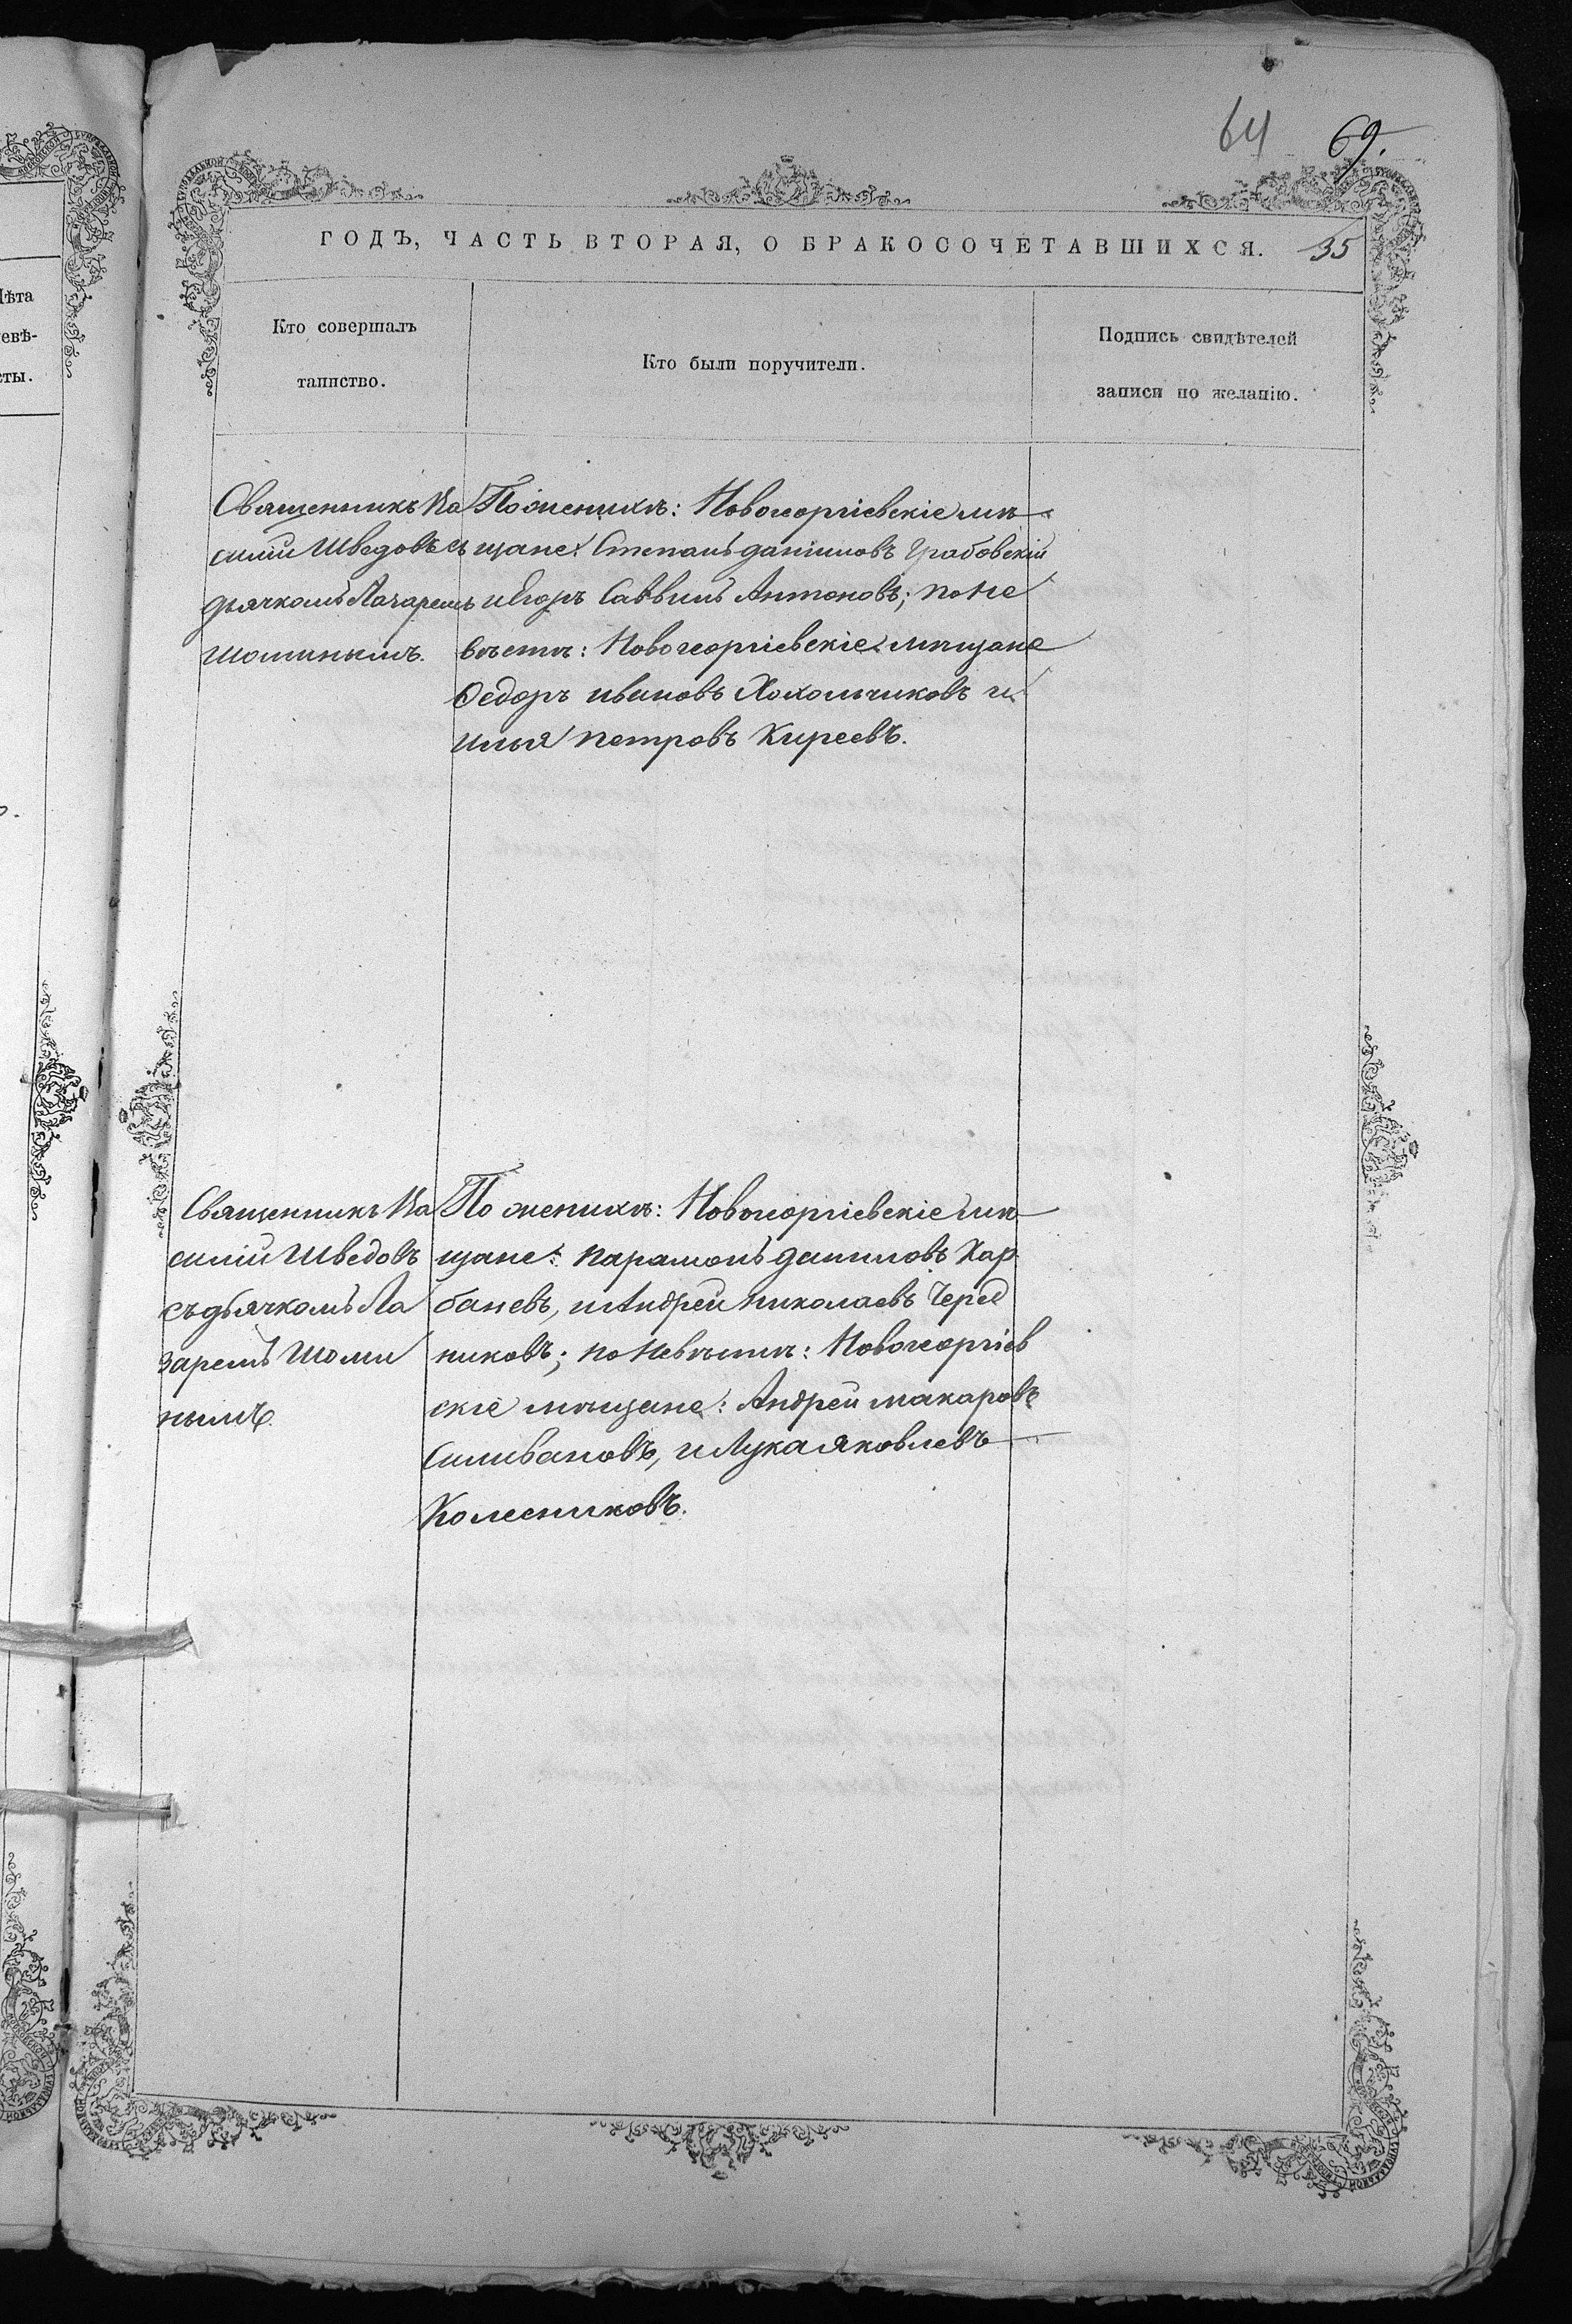 64 69.
ГОДЪ, ЧАСТЬ ВТОРАЯ, О БРАКОСОЧЕТАВШИХСЯ. 35
Лѣта
невѣ-
сты.
Кто совершалъ
таинство.
Кто были поручители.
Подпись свидѣтелей
записи по желанію.
Священникъ Ва
силій Шведовъ съ
дьячкомъ Лазаремъ
Шоминымъ.
По женихѣ: Новогеоргіевскіе мѣ
щане: Степанъ даниловъ Грабовскій
и Егоръ Саввинъ Антоновъ; по не
вѣстѣ: Новогеоргіевскіе мѣщане
Ѳедоръ ивановъ Хохольчиковъ и
илья петровъ Киреевъ.
Священникъ Ва
силій Шведовъ
съ дьячкомъ Ла
заремъ Шоми
нымъ.
По женихѣ: Новогеоргіевскіе мѣ
щане: парамонъ даниловъ Кар
баневъ, и Андрей николаевъ Черед
никовъ; по невѣстѣ: Новогеоргіев
скіе мѣщане: Андрей макаровъ
Силивановъ, и Лука яковлевъ
Колесниковъ.